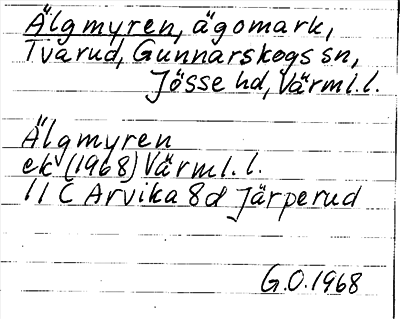 Älgmyren, ägomark,
Tvärud, Gunnarskogs sn,
Jösse hd, Värml.l.
Älgmyren
ek (1968) Värml.l.
11 C Arvika 8d Järperud
G.O.1968